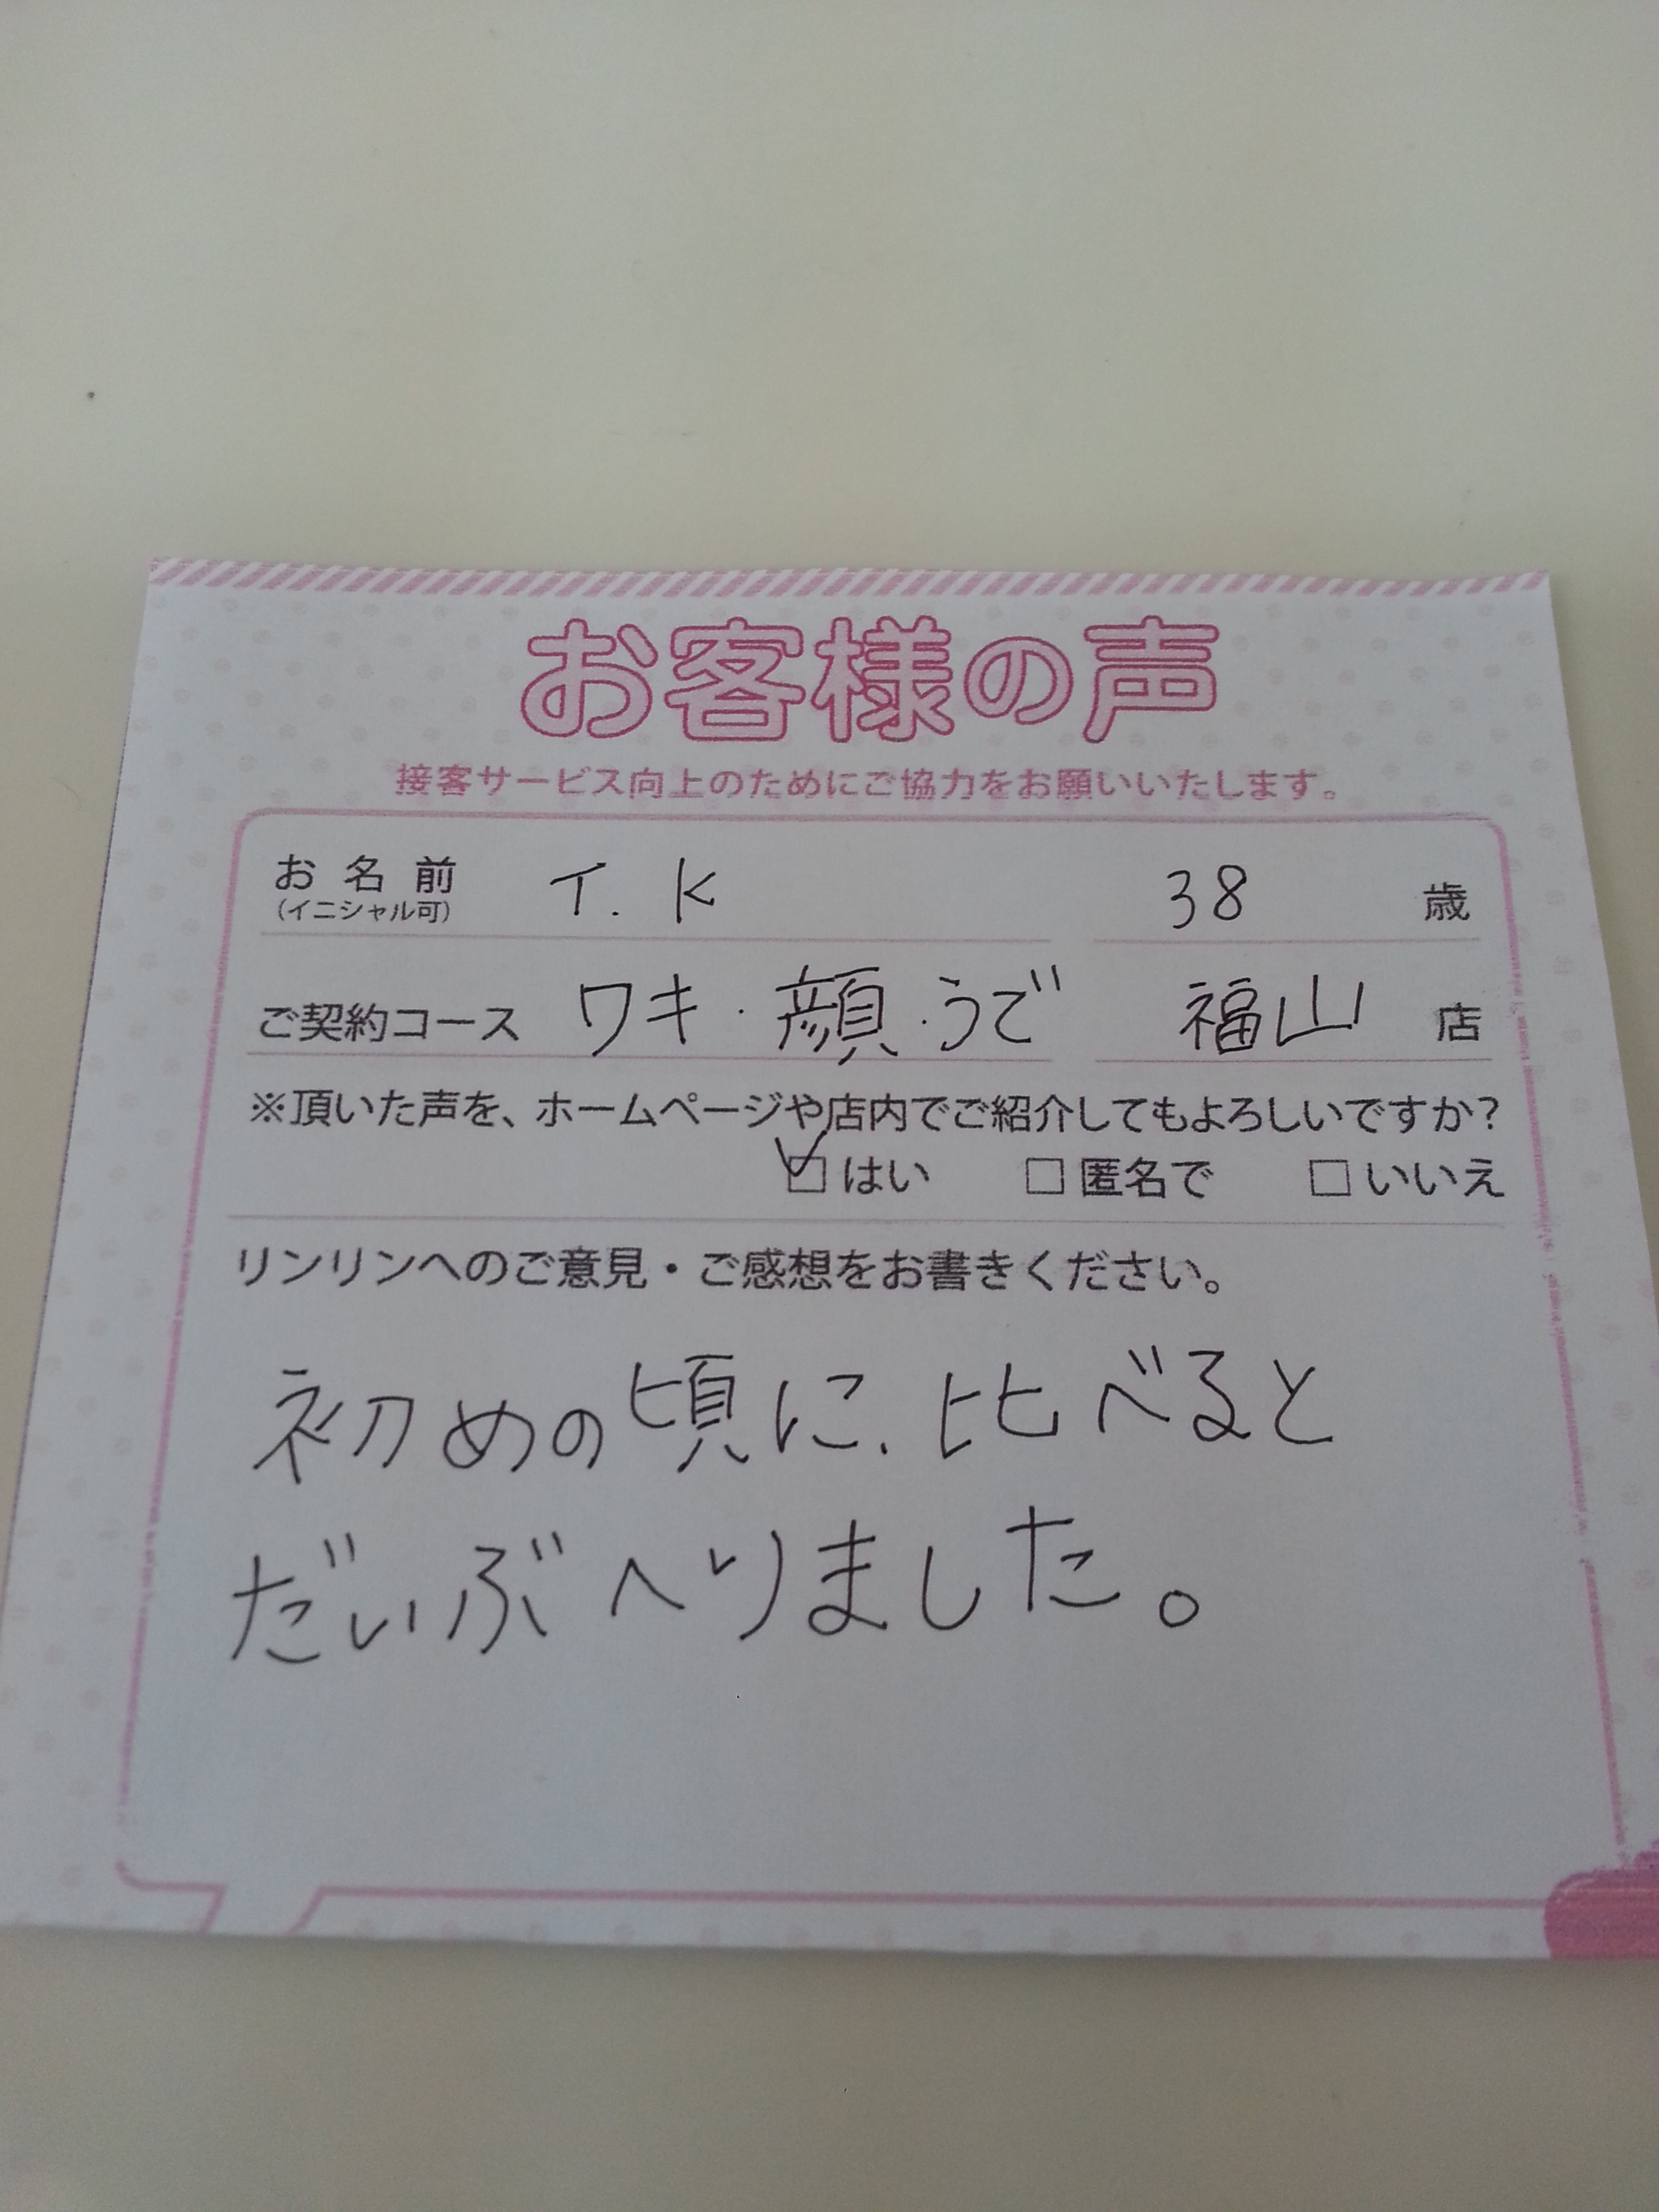 お客様の声
接客サービス向上のためにご協力をお願いいたします。
お名前 T. K 38 歳
(イニシャル可)
ご契約コース ワキ・顔・うで 福山 店
※頂いた声を、ホームページや店内でご紹介してもよろしいですか?
☑はい □匿名で □いいえ
リンリンへのご意見・ご感想をお書きください。
初めの頃に、比べると
だいぶへりました。